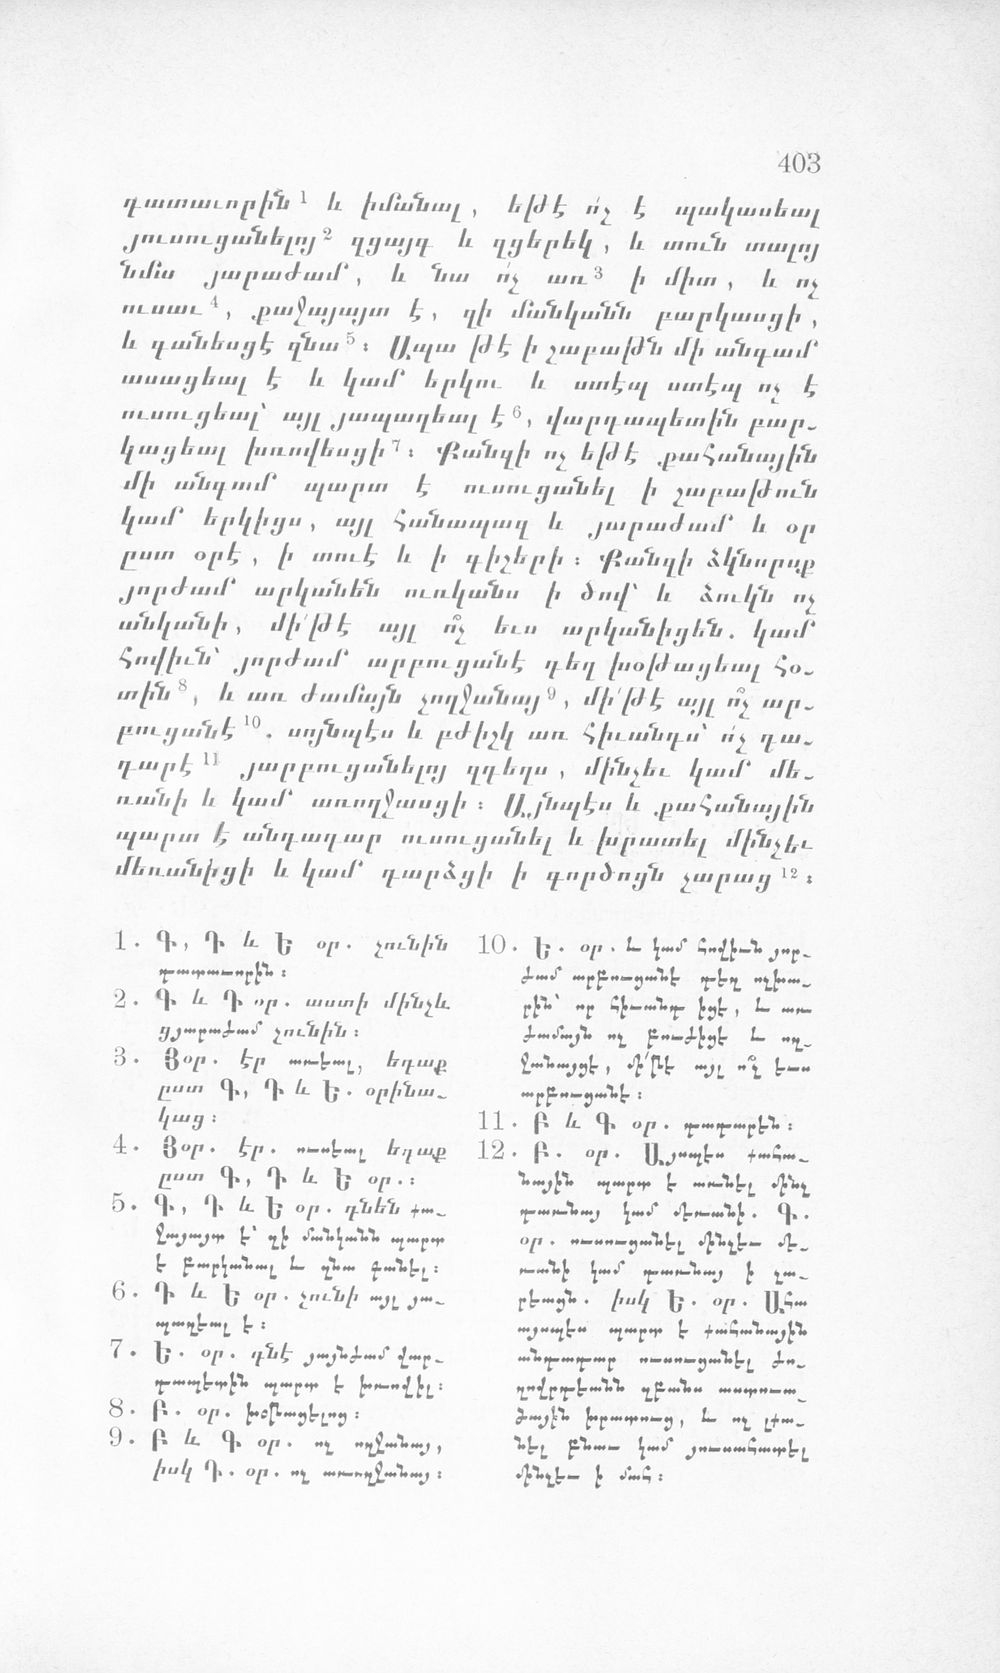 403
դատաւորին 1 և իմանալ, եթէ ո՛չ է պակասեալ
յուսուցանելոյ 2 զցայգ և զցերեկ, և տուն տալոյ
նմա յարաժամ, և նա ո՛չ առ 3 ի միտ, և ոչ
ուսաւ 4, քաջայայտ է, զի մանկանն բարկասցի,
և գանեսցէ զնա 5։ Ապա թէ ի շաբաթն մի անգամ
ասացեալ է և կամ երկու և ստէպ ստէպ ոչ է
ուսուցեալ՝ այլ յապաղեալ է 6, վարդապետին բար-
կացեալ խռովեսցի 7։ Քանզի ոչ եթէ քահանային
մի անգամ պարտ է ուսուցանել ի շաբաթուն
կամ երկիցս, այլ հանապազ և յարաժամ և օր
ըստ օրէ, ի տուէ և ի գիշերի։ Քանզի ձկնորսք
յորժամ արկանեն ուռկանս ի ծով՝ և ձուկն ոչ
անկանի, մի՛թէ այլ ո՞չ ևս արկանիցեն. կամ
հովիւն՝ յորժամ արբուցանէ դեղ խօթացեալ հօ-
տին 8, և առ ժամայն չողջանայ 9, մի՛թէ այլ ո՞չ ար-
բուցանէ 10. սոյնպէս և բժիշկ առ հիւանդս՝ ո՛չ դա-
դարէ 11 յարբուցանելոյ զդեղս, մինչեւ կամ մե-
ռանի և կամ առողջասցի։ Այնպէս և քահանային
պարտ է անդադար ուսուցանել և խրատել մինչեւ
մեռանիցի և կամ դարձցի ի գործոցն չարաց 12։
1. Գ, Դ և Ե օր. չունին
դատաւորին։
2. Գ և Դ օր. աստի մինչև
ցյարաժամ չունին։
3. Յօր. էր առեալ, եդաք
ըստ Գ, Դ և Ե. օրինա-
կաց։
4. Յօր. էր. ուսեալ եդաք
ըստ Գ, Դ և Ե օր.։
5. Գ, Դ և Ե օր. դնեն քա-
ջայայտ է՝ զի մանկանն պարտ
է բարկանալ և զնա գանել։
6. Դ և Ե օր. չունի այլ յա-
պաղեալ է։
7. Ե. օր. դնէ յայնժամ վար-
դապետին պարտ է խռովիլ։
8. Բ. օր. խօթացելոց։
9. Բ և Գ օր. ոչ ողջանայ,
իսկ Դ. օր. ոչ առողջանայ։
10. Ե. օր. և կամ հովիւն յոր-
ժամ արբուցանէ դեղ ոչխա-
րին՝ որ հիւանդ իցէ, և առ
ժամայն ոչ բուժիցէ և ող-
ջանայցէ, մի՛թէ այլ ո՞չ ևս
արբուցանէ։
11. Բ և Գ օր. դադարէն։
12. Բ. օր. Այսպէս քահա-
նային պարտ է առնել մինչ
դառնայ կամ մեռանի. Գ.
օր. ուսուցանել մինչեւ մե-
ռանի կամ դառնայ ի չա-
րեացն. իսկ Ե. օր. Ահա
այսպէս պարտ է քահանային
անդադար ուսուցանել ժո-
ղովրդեանն զբանս աստուա-
ծային խրատուց, և ոչ լքա-
նել բնաւ կամ յուսահատել
մինչեւ ի մահ։